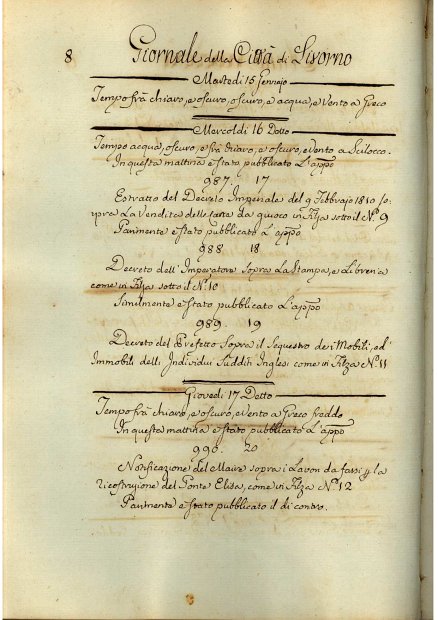 8 Giornale della Città di Livorno
Martedì 15 Gennajo
Tempo frà chiaro, e oscuro, oscuro, e acqua, e Vento a Greco
Mercoldì 16 Detto
Tempo acqua, oscuro, e frà chiaro, e oscuro, e vento a Scilocco.
In questa mattina è stato pubblicato L'appo
987. 17
Estratto del Decreto Imperiale del 9 Febbrajo 1810 so-
pra La Vendita delle Carte da giuoco in Filza sotto il N.° 9
Parimente è stato pubblicato L'appo
988 18
Decreto dell'Imperatore sopra La Stampa, e Libreria
come in Filza sotto il N.° 10
Similmente è stato pubblicato L'appo
989 19
Decreto del Prefetto Sopra il Sequestro dei Mobili, ed
Immobili delli Individui Sudditi Inglesi come in Filza N.° 11
Giovedì 17 Detto
Tempo frà chiaro, e oscuro, e vento a Greco freddo
In questa mattina è stato pubblicato L'appo
990. 20
Notificazione del Maire sopra i Lavori da farsi p la
ricostruzione del Ponte Elisa, come in Filza N.° 12
Parimente è stato pubblicato il di contro.